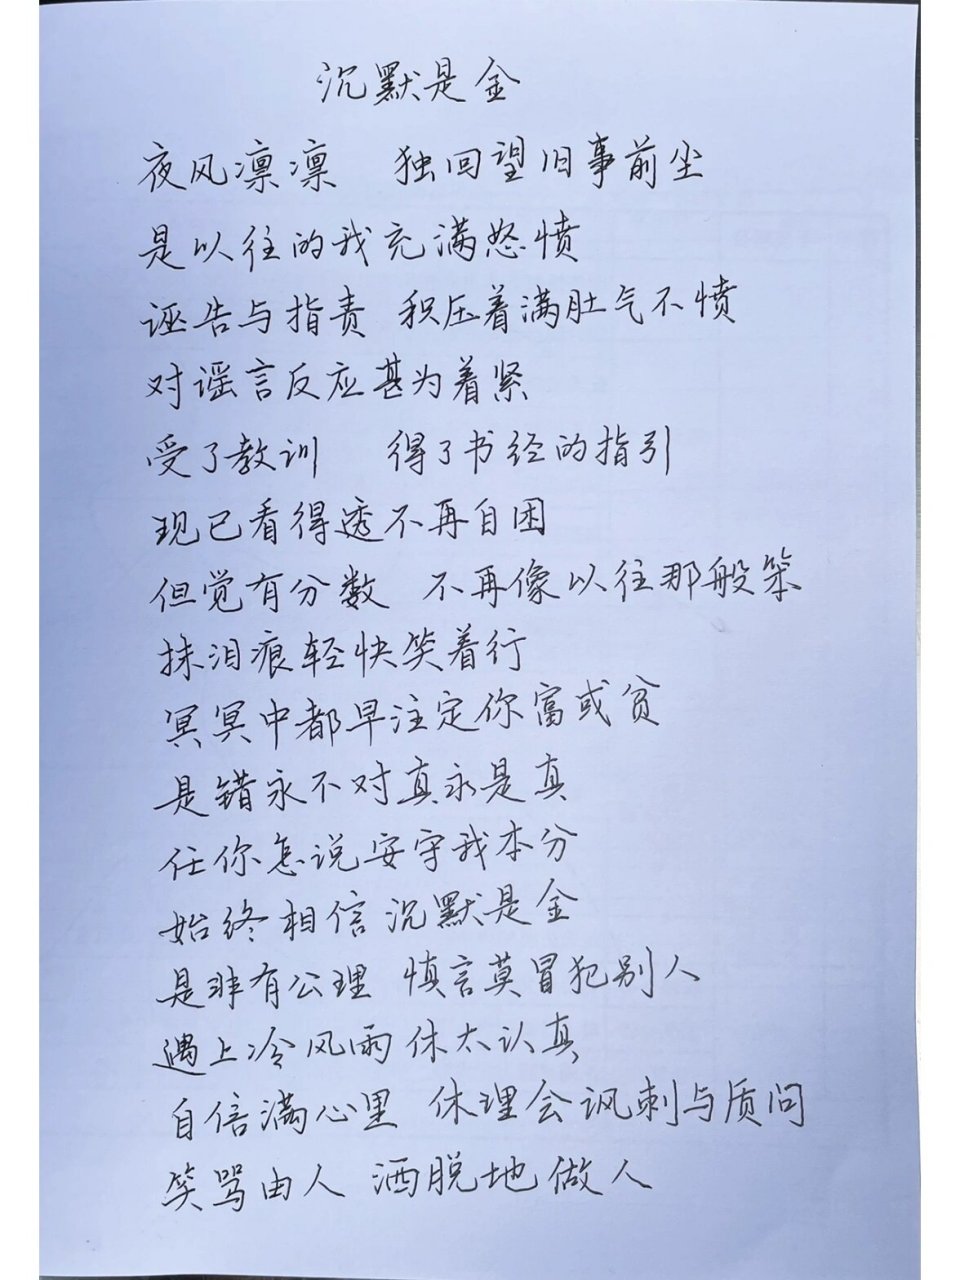 沉默是金
夜风凛凛 独回望旧事前尘
是以往的我充满怒愤
诬告与指责 积压着满肚气不愤
对谣言反应甚为着紧
受了教训 得了书经的指引
现已看得透不再自困
但觉有分数 不再像以往那般笨
抹泪痕轻快笑着行
冥冥中都早注定你富或贫
是错永不对真永是真
任你怎说安守我本分
始终相信沉默是金
是非有公理 慎言莫冒犯别人
遇上冷风雨休太认真
自信满心里 休理会讽刺与质问
笑骂由人 洒脱地做人